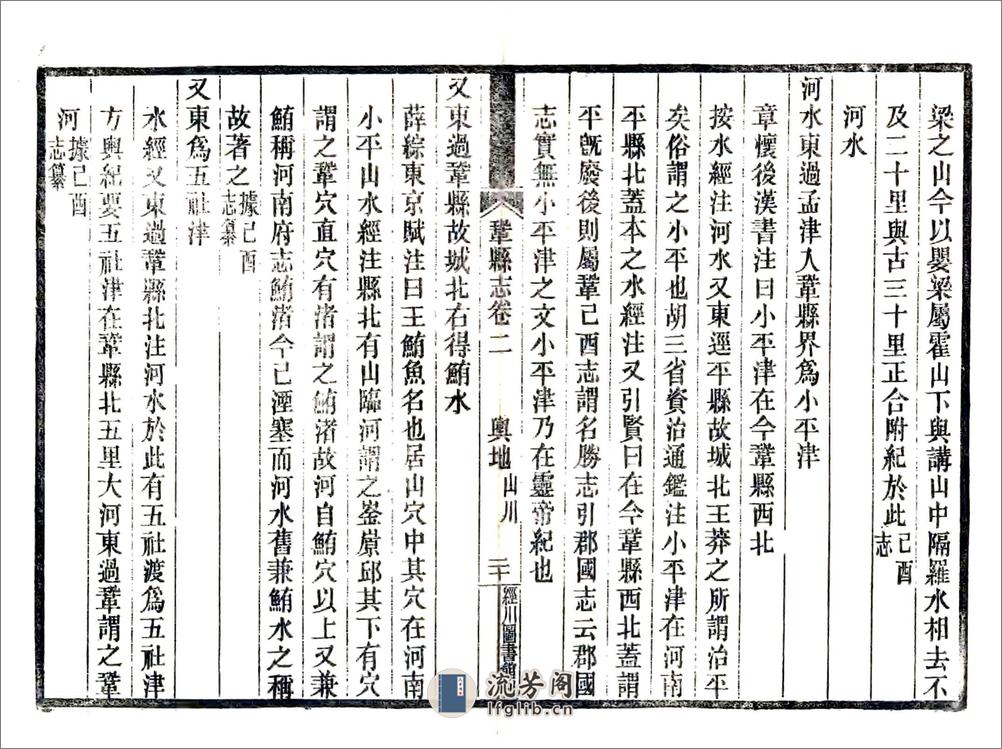 梁之山今以嬰梁屬霍山下與講山中隔羅水相去不
及二十里與古三十里正合附紀於此己酉志
河水
河水東過孟津入鞏縣界爲小平津
章懷後漢書注曰小平津在今鞏縣西北
按水經注河水又東逕平縣故城北王莽之所謂治平
矣俗謂之小平也胡三省資治通鑑注小平津在河南
平縣北蓋本之水經注又引賢曰在今鞏縣西北蓋謂
平旣廢後則屬鞏己酉志謂名勝志引郡國志云郡國
志實無小平津之文小平津乃在靈帝紀也
鞏縣志卷二 輿地 山川 二十 經川圖書館
又東過鞏縣故城北右得鮪水
薛綜東京賦注曰王鮪魚名也居山穴中其穴在河南
小平山水經注縣北有山臨河謂之崟原邱其下有穴
謂之鞏穴直穴有渚謂之鮪渚故河自鮪穴以上又兼
鮪稱河南府志鮪渚今已湮塞而河水舊兼鮪水之稱
故著之據己酉志纂
又東爲五社津
水經又東過鞏縣北注河水於此有五社渡爲五社津
方輿紀要五社津在鞏縣北五里大河東過鞏謂之鞏
河據己酉志纂
流芳阁
lfglib.cn